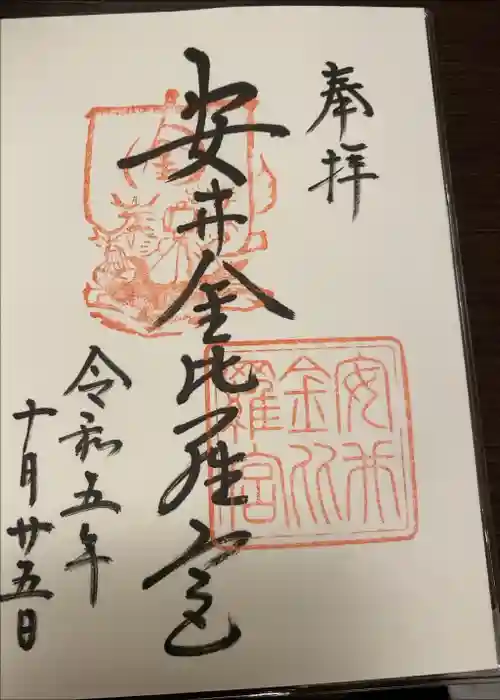 奉拝
安井金比羅宮
安井
金比
羅宮
令和五年
十月廿五日